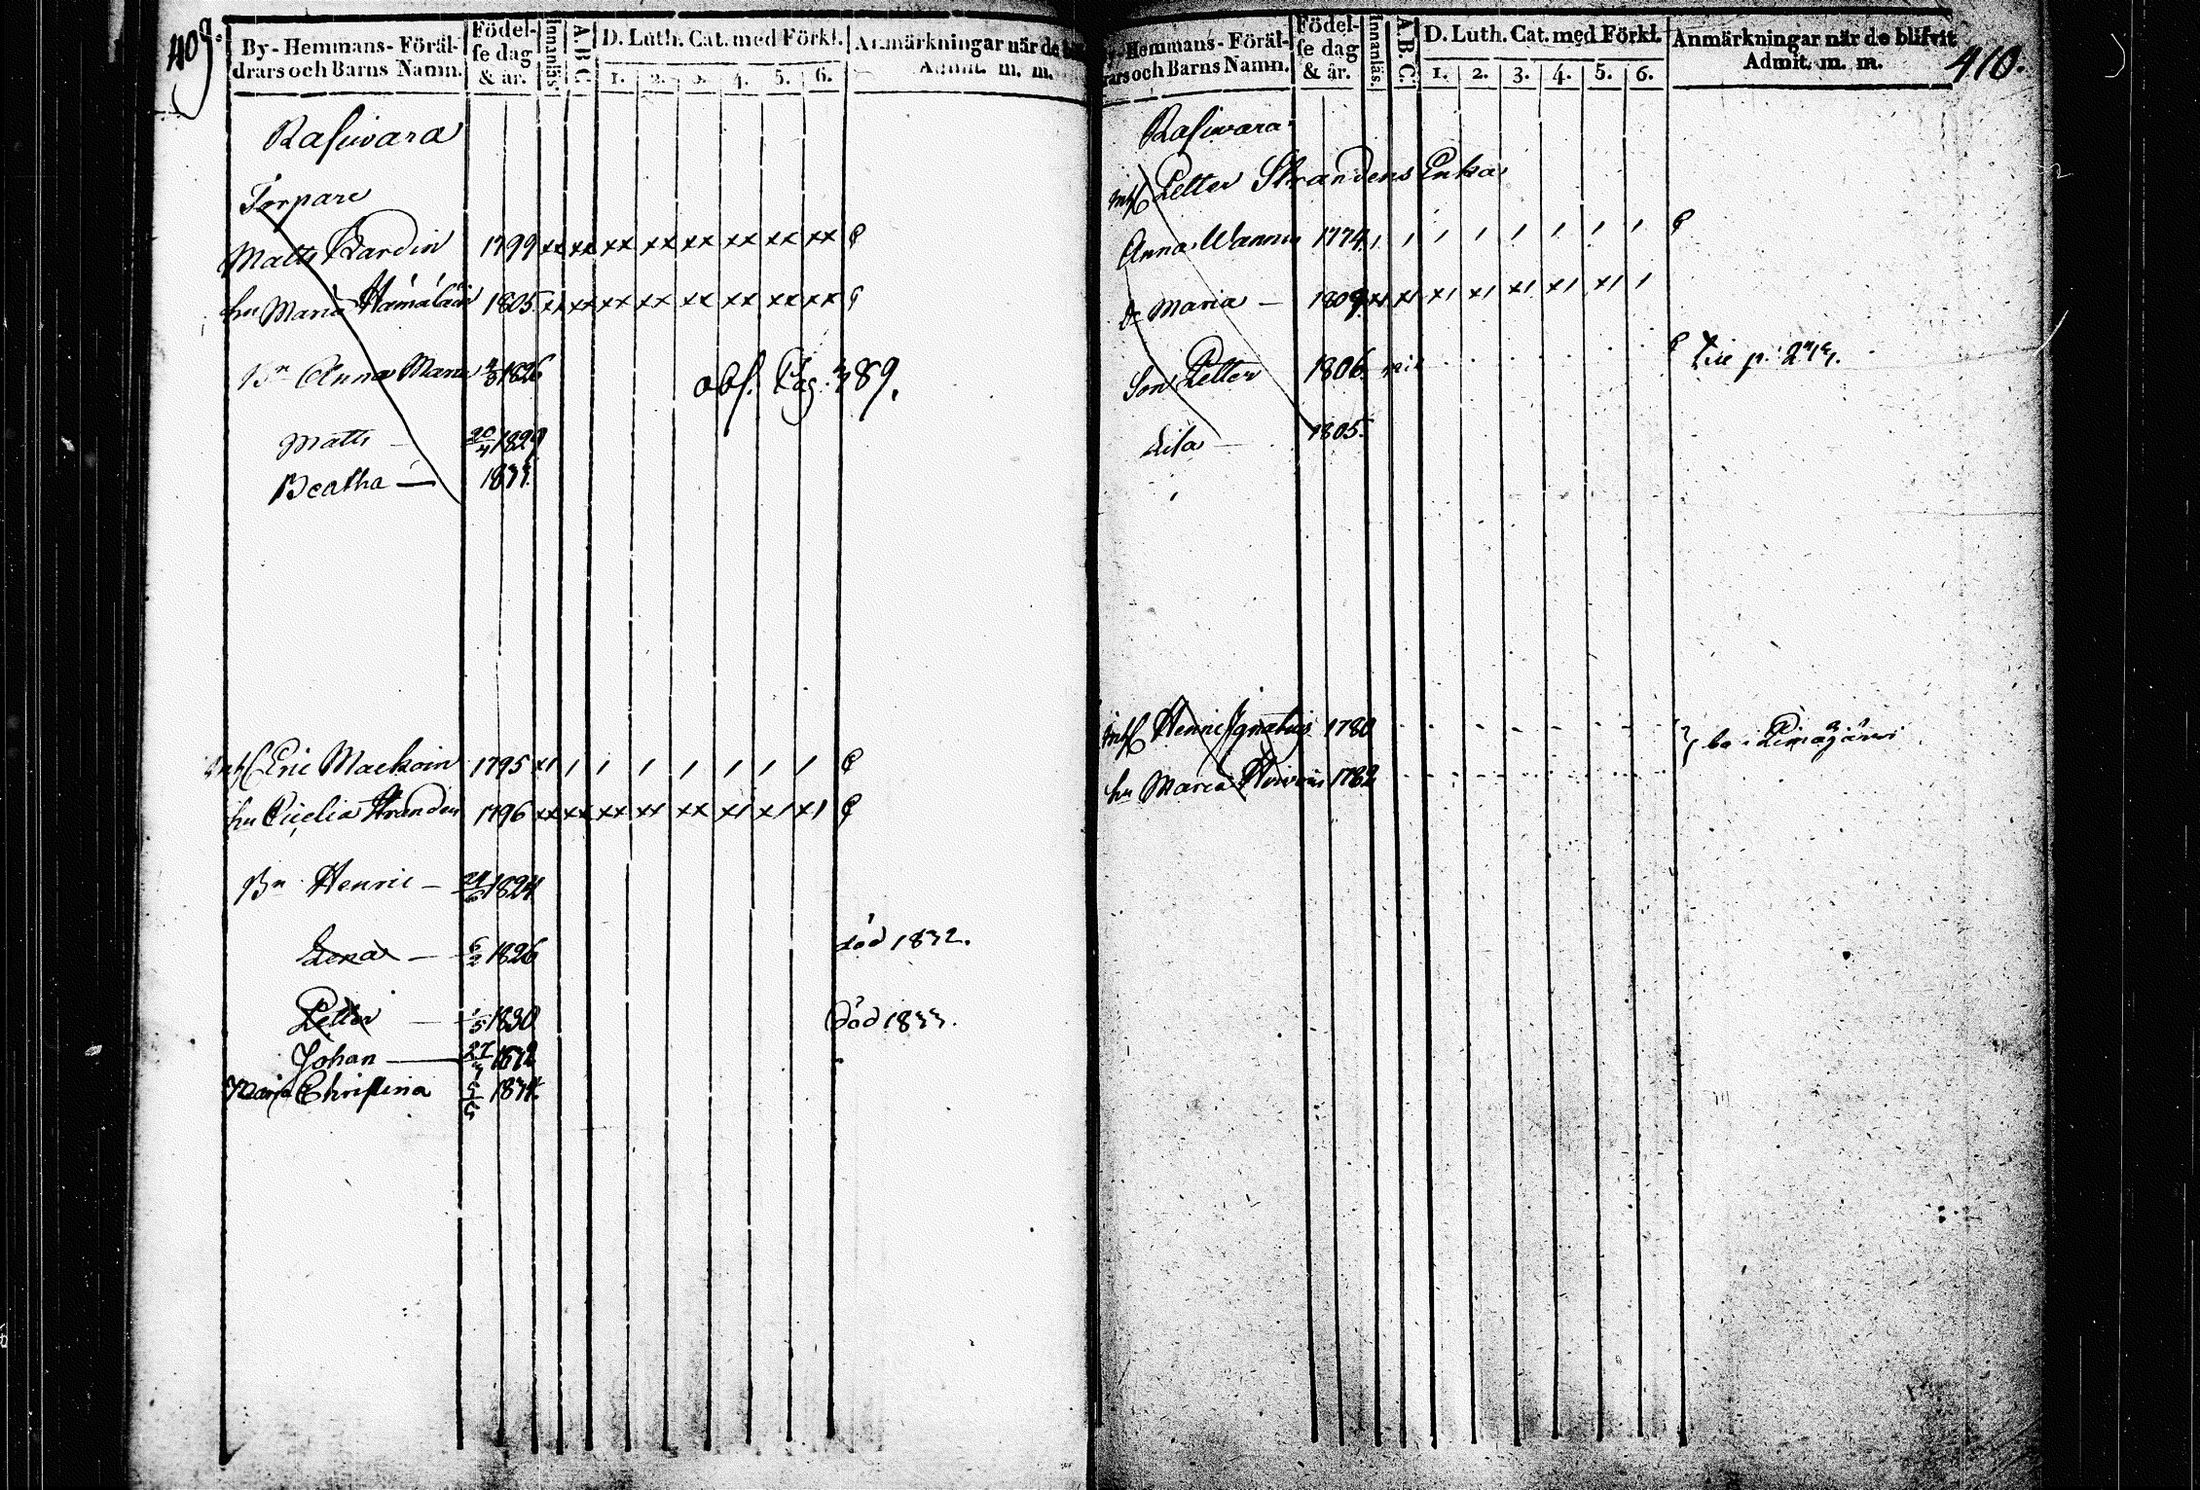 409.
By-Hemmans-Föräl-
drars och Barns Namn.
Födel-
se dag
& år.
Innanläs.
A.B.C.
D. Luth. Cat. med Förkl.
1. 2. 3. 4. 5. 6.
Anmärkningar när de
Admit. m. m.
Rasiwara
Torpare
Matts Hardin 1799 xx xx xx xx xx xx xx xx
hu Maria Hämäläin 1805 xx xx xx xx xx xx xx xx
Bn Anna Maria 1826
obs. Pag. 389.
Matts — 20/4 1829
Beatha — 1833.
Inh Eric Maekoin 1795 x1 1 1 1 1 1 1 1
hu Cicelia Stranden 1796 xx xx xx xx xx x1 x1 x1
Bn Henric — 1824
Lena — 6/2 1826 död 1832.
Petter — 1830 död 1833.
Johan — 1832
Maria Christina 5/5 1834.
410.
Hemmans-Föräl-
rars och Barns Namn.
Födel-
se dag
& år.
Innanläs.
A.B.C.
D. Luth. Cat. med Förkl.
1. 2. 3. 4. 5. 6.
Anmärkningar när de blifvit
Admit. m. m.
Rasiwara
Inh Petter Strandens Enka
Anna Wannin 1774. 1 1 1 1 1 1 1 1
Dr Maria — 1809. x1 x1 x1 x1 x1 x1 x1 1
Son Petter 1806.
Lisa — 1805.
Inh Henric Ignatius 1780
hu Maria 1782